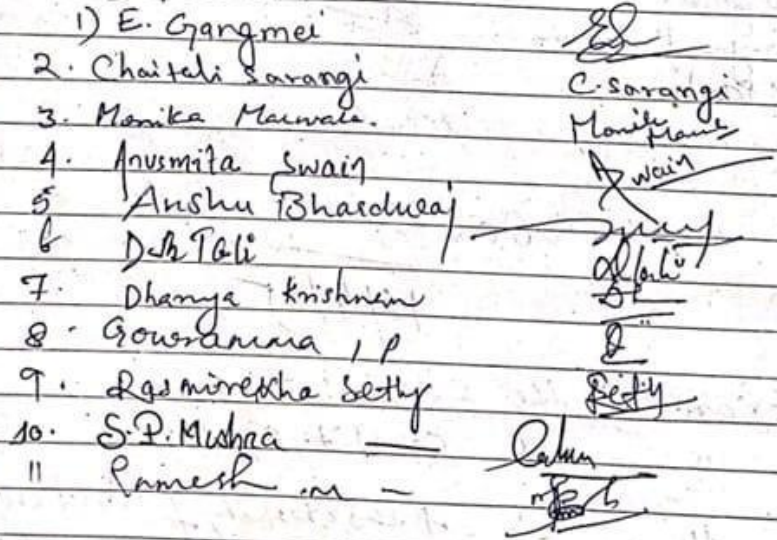 1) E. Gangmei
2. Chaitali Sarangi C. Sarangi
3. Monika
4. Anusmita Swain Swain
5 Anshu Bhardwaj
6 Tali
7. Dhanya Krishnan
8. Gowramma I P
9. Rasmirekha Sethy Sethy
10. S.P. Mishra —
11 Ramesh .M –